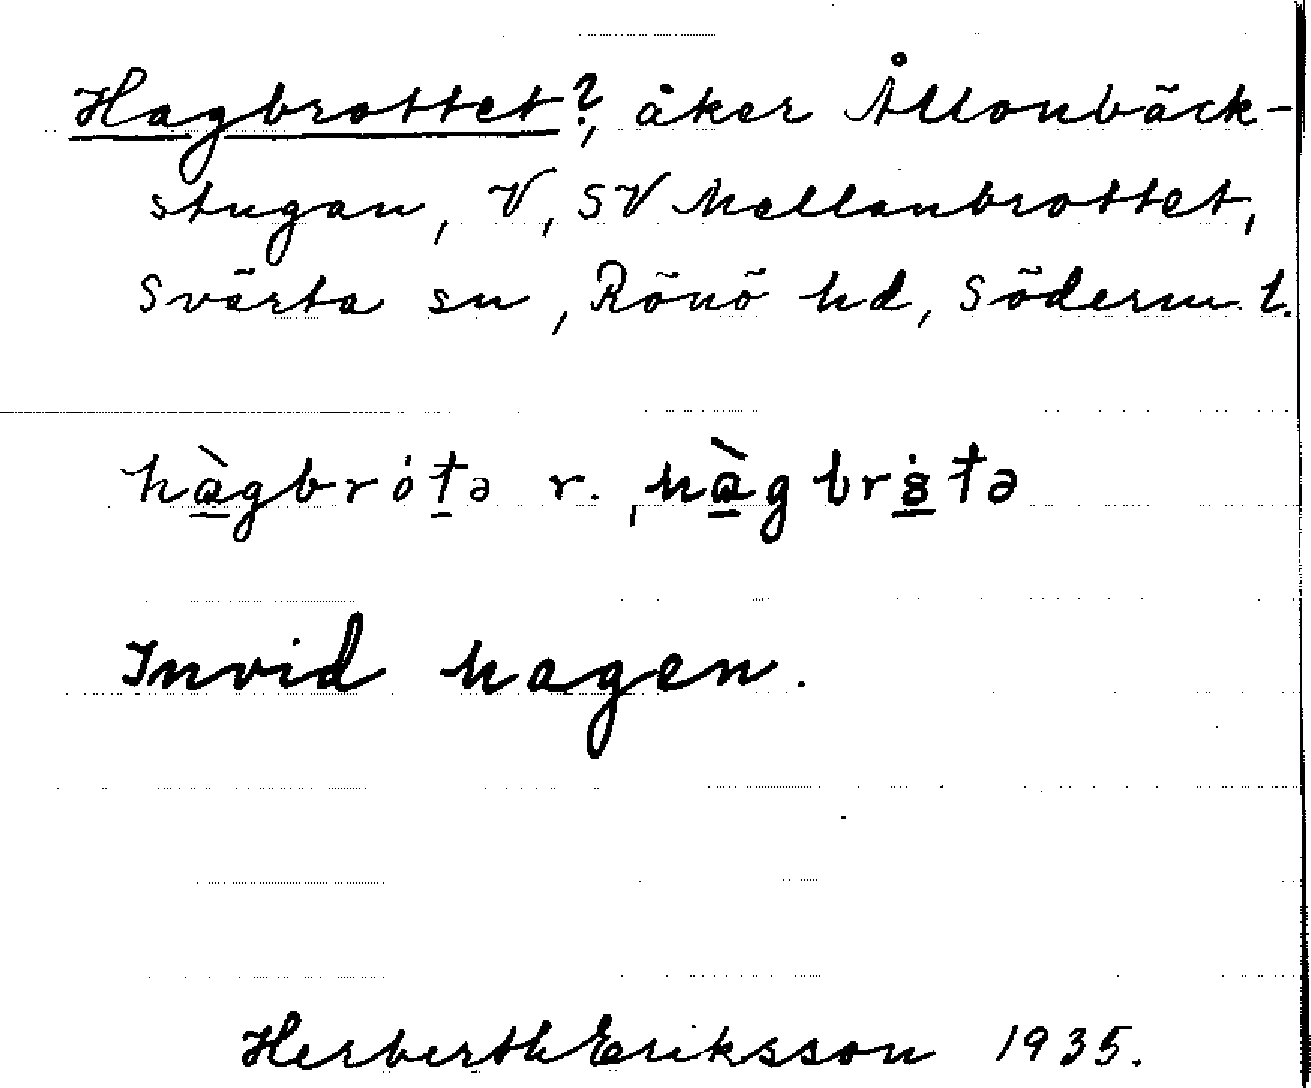 Hagbrottet?, åker Ållonbäck-
stugan, V, SV Mellanbrottet,
Svärta sn, Rönö hd, Söderm. l.
hàgbrót̠ə r., hàgbrs̠tə
Invid hagen.
Herberth Eriksson 1935.